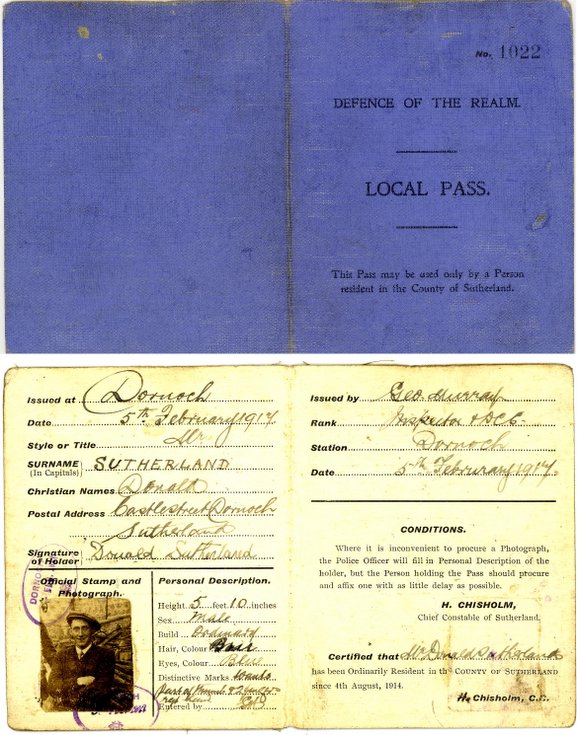 No. 1022
DEFENCE OF THE REALM.
LOCAL PASS.
This Pass may be used only by a Person
resident in the County of Sutherland.
Issued at Dornoch
Date 5th February 1917
Style or Title Mr
SURNAME SUTHERLAND
(In Capitals)
Christian Names Donald
Postal Address Castle street Dornoch
Sutherland
Signature of Holder Donald Sutherland
Official Stamp and
Photograph.
DORNO
Personal Description.
Height 5 feet 10 inches
Sex Male
Build Ordinary
Hair, Colour
Eyes, Colour Blue
Distinctive Marks
Entered by
Issued by Geo. Murray
Rank Inspector & D.C.C.
Station Dornoch
Date 5th Februrary 1917.
CONDITIONS.
Where it is inconvenient to procure a Photograph,
the Police Officer will fill in Personal Description of the
holder, but the Person holding the Pass should procure
and affix one with as little delay as possible.
H. CHISHOLM,
Chief Constable of Sutherland.
Certified that Mr Donald Sutherland
has been Ordinarily Resident in the COUNTY OF SUTHERLAND
since 4th August, 1914.
H. Chisholm, C.C.